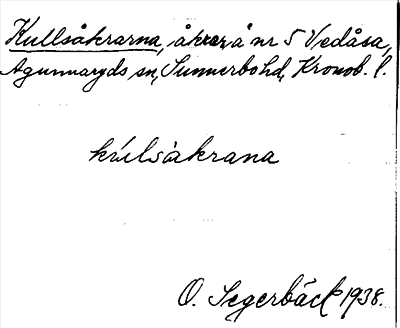 Kullsåkrarna, åkrar å nr 5 Vedåsa,
Agunnaryds sn, Sunnerbo hd, Kronob. l.
kúlsàkrana
O. Segerbäck 1938.